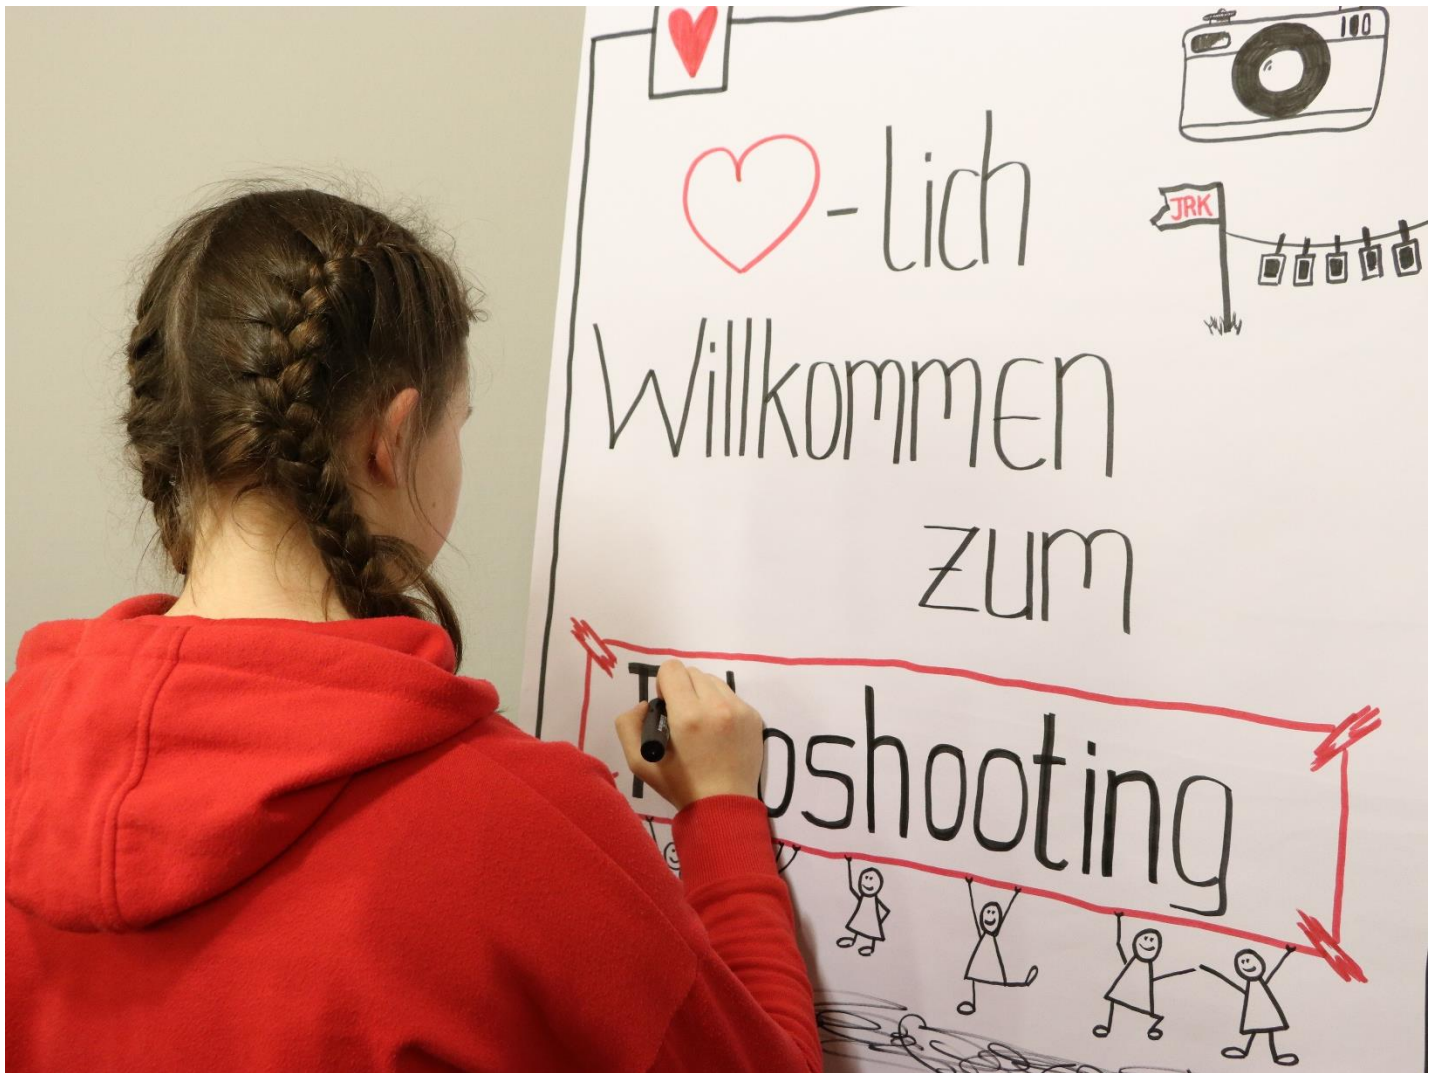 ♥-lich
JRK
Willkommen
zum
shooting